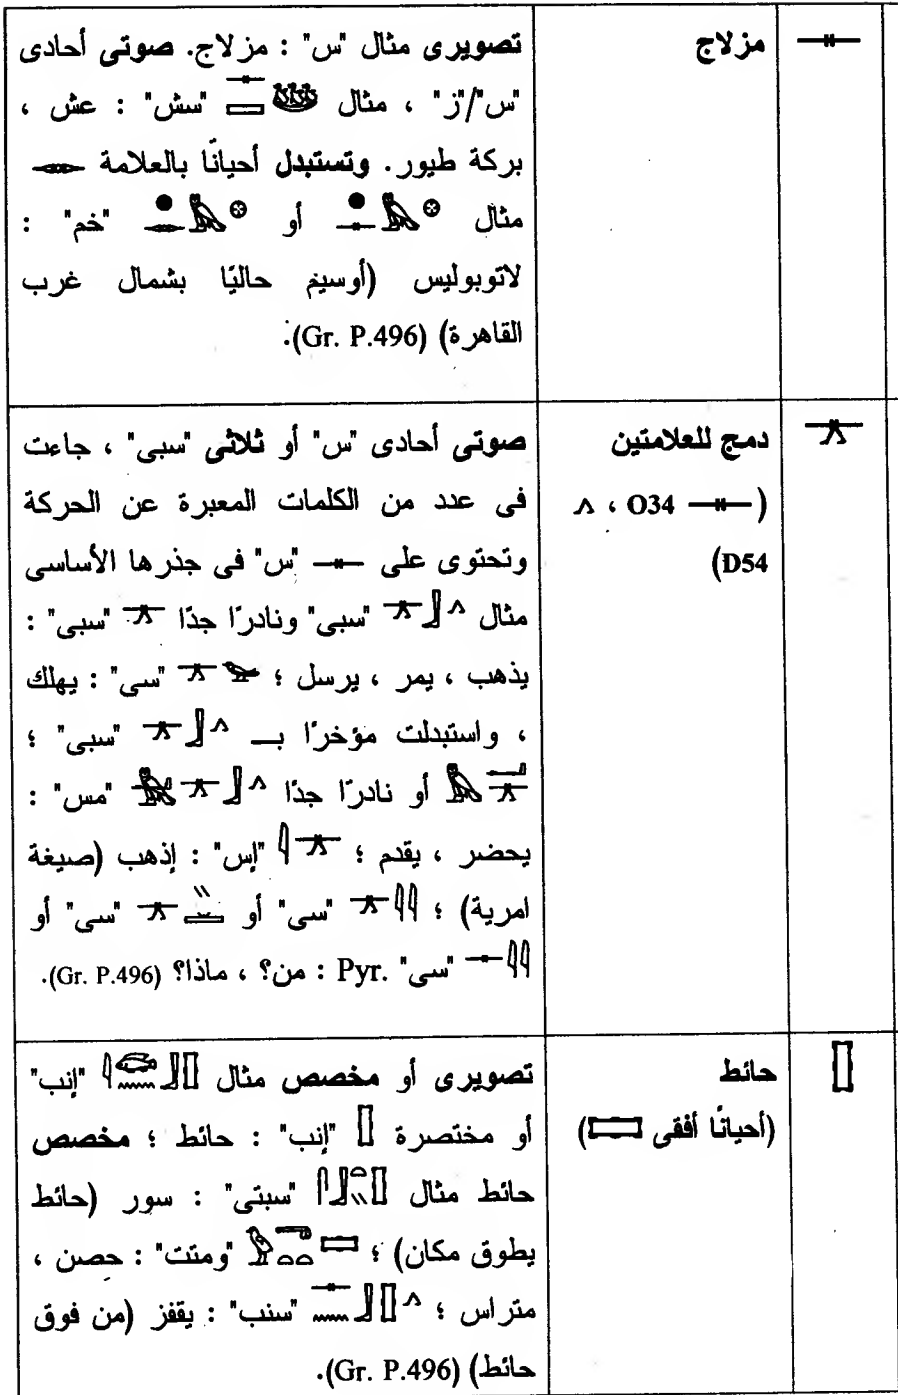 مزلاج
تصويرى مثال "س" : مزلاج. صوتى أحادى
"س"/"ز" ، مثال "سش" : عش ،
بركة طيور. وتستبدل أحيانًا بالعلامة
مثال أو "خم" :
لاتوبوليس (أوسيم حاليًا بشمال غرب
القاهرة) (Gr. P.496).
دمج للعلامتين
(O34 ،
D54)
صوتى أحادى "س" أو ثلاثى "سبى" ، جاءت
فى عدد من الكلمات المعبرة عن الحركة
وتحتوى على "س" فى جذرها الأساسى
مثال "سبى" ونادرًا جدًا "سبى" :
يذهب ، يمر ، يرسل ؛ "سى" : يهلك
، واستبدلت مؤخرًا بـ "سبى" ؛
أو نادرًا جدًا "مس" :
يحضر ، يقدم ؛ "إس" : إذهب (صيغة
امرية) ؛ "سى" أو "سى" أو
"سى" Pyr. : من؟ ، ماذا؟ (Gr. P.496).
حائط
(أحيانًا أفقى )
تصويرى أو مخصص مثال "إنب"
أو مختصرة "إنب" : حائط ؛ مخصص
حائط مثال "سبتى" : سور (حائط
يطوق مكان) ؛ "ومتت" : حصن ،
متراس ؛ "سنب" : يقفز (من فوق
حائط) (Gr. P.496).